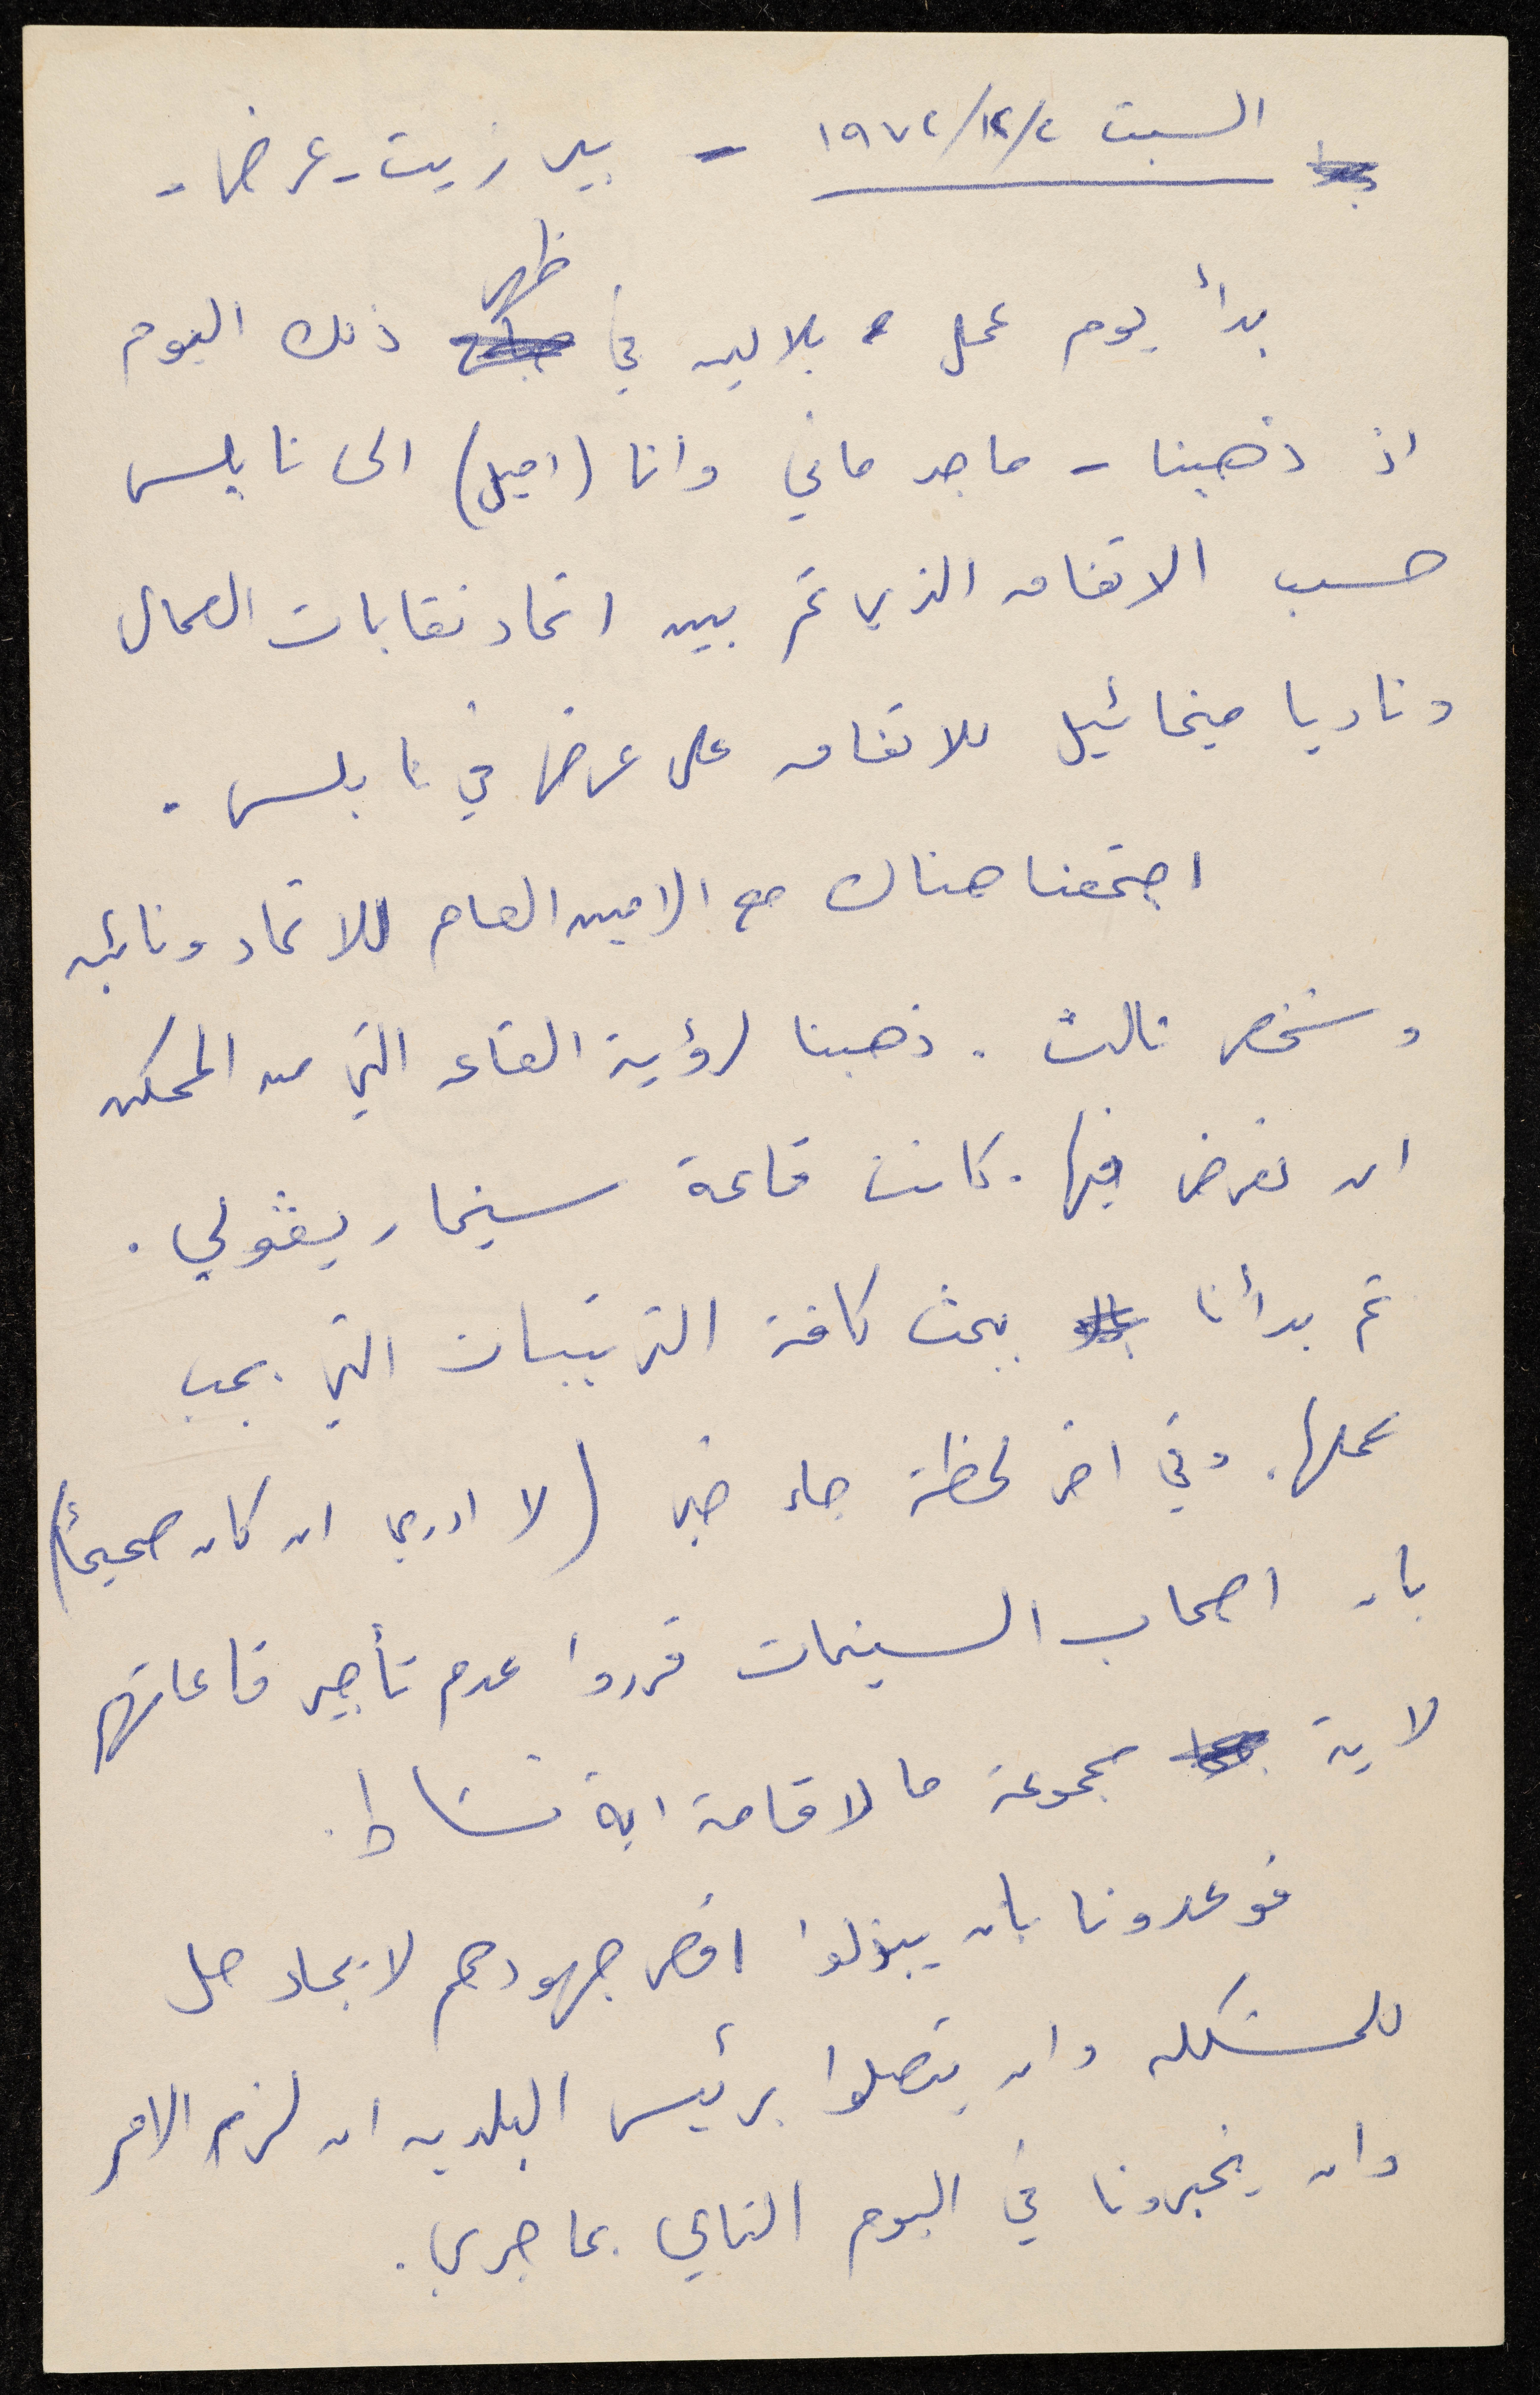 السبت ٢/١٢/١٩٧٢ - بير زيت - عرض -
بدأ يوم عمل بلالين في ظهر ذلك اليوم
اذ ذهبنا - ماجد ماني وانا (اميل) الى نابلس
حسب الاتفاق الذي تم بين اتحاد نقابات العمال
وناديا ميخائيل للاتفاق على عرض في نابلس .
اجتمعنا هناك مع الامين العام للاتحاد ونائبه
وشخص ثالث . ذهبنا لرؤية القاعه التي من الممكن
ان نعرض فيها . كانت قاعة سينما ريڤولي .
ثم بدأنا ببحث كافة الترتيبات التي يجب
عملها . وفي اخر لحظة جاء خبر (لا ادري ان كان صحيحاً)
بان اصحاب السينمات قرروا عدم تأجير قاعاتهم
لاية مجموعة ما لاقامة اية نشاط .
فوعدونا بان يبذلوا اقصى جهودهم لايجاد حل
للمشكله وان يتصلوا برئيس البلديه ان لزم الامر
وان يخبرونا في اليوم التالي بما جرى .